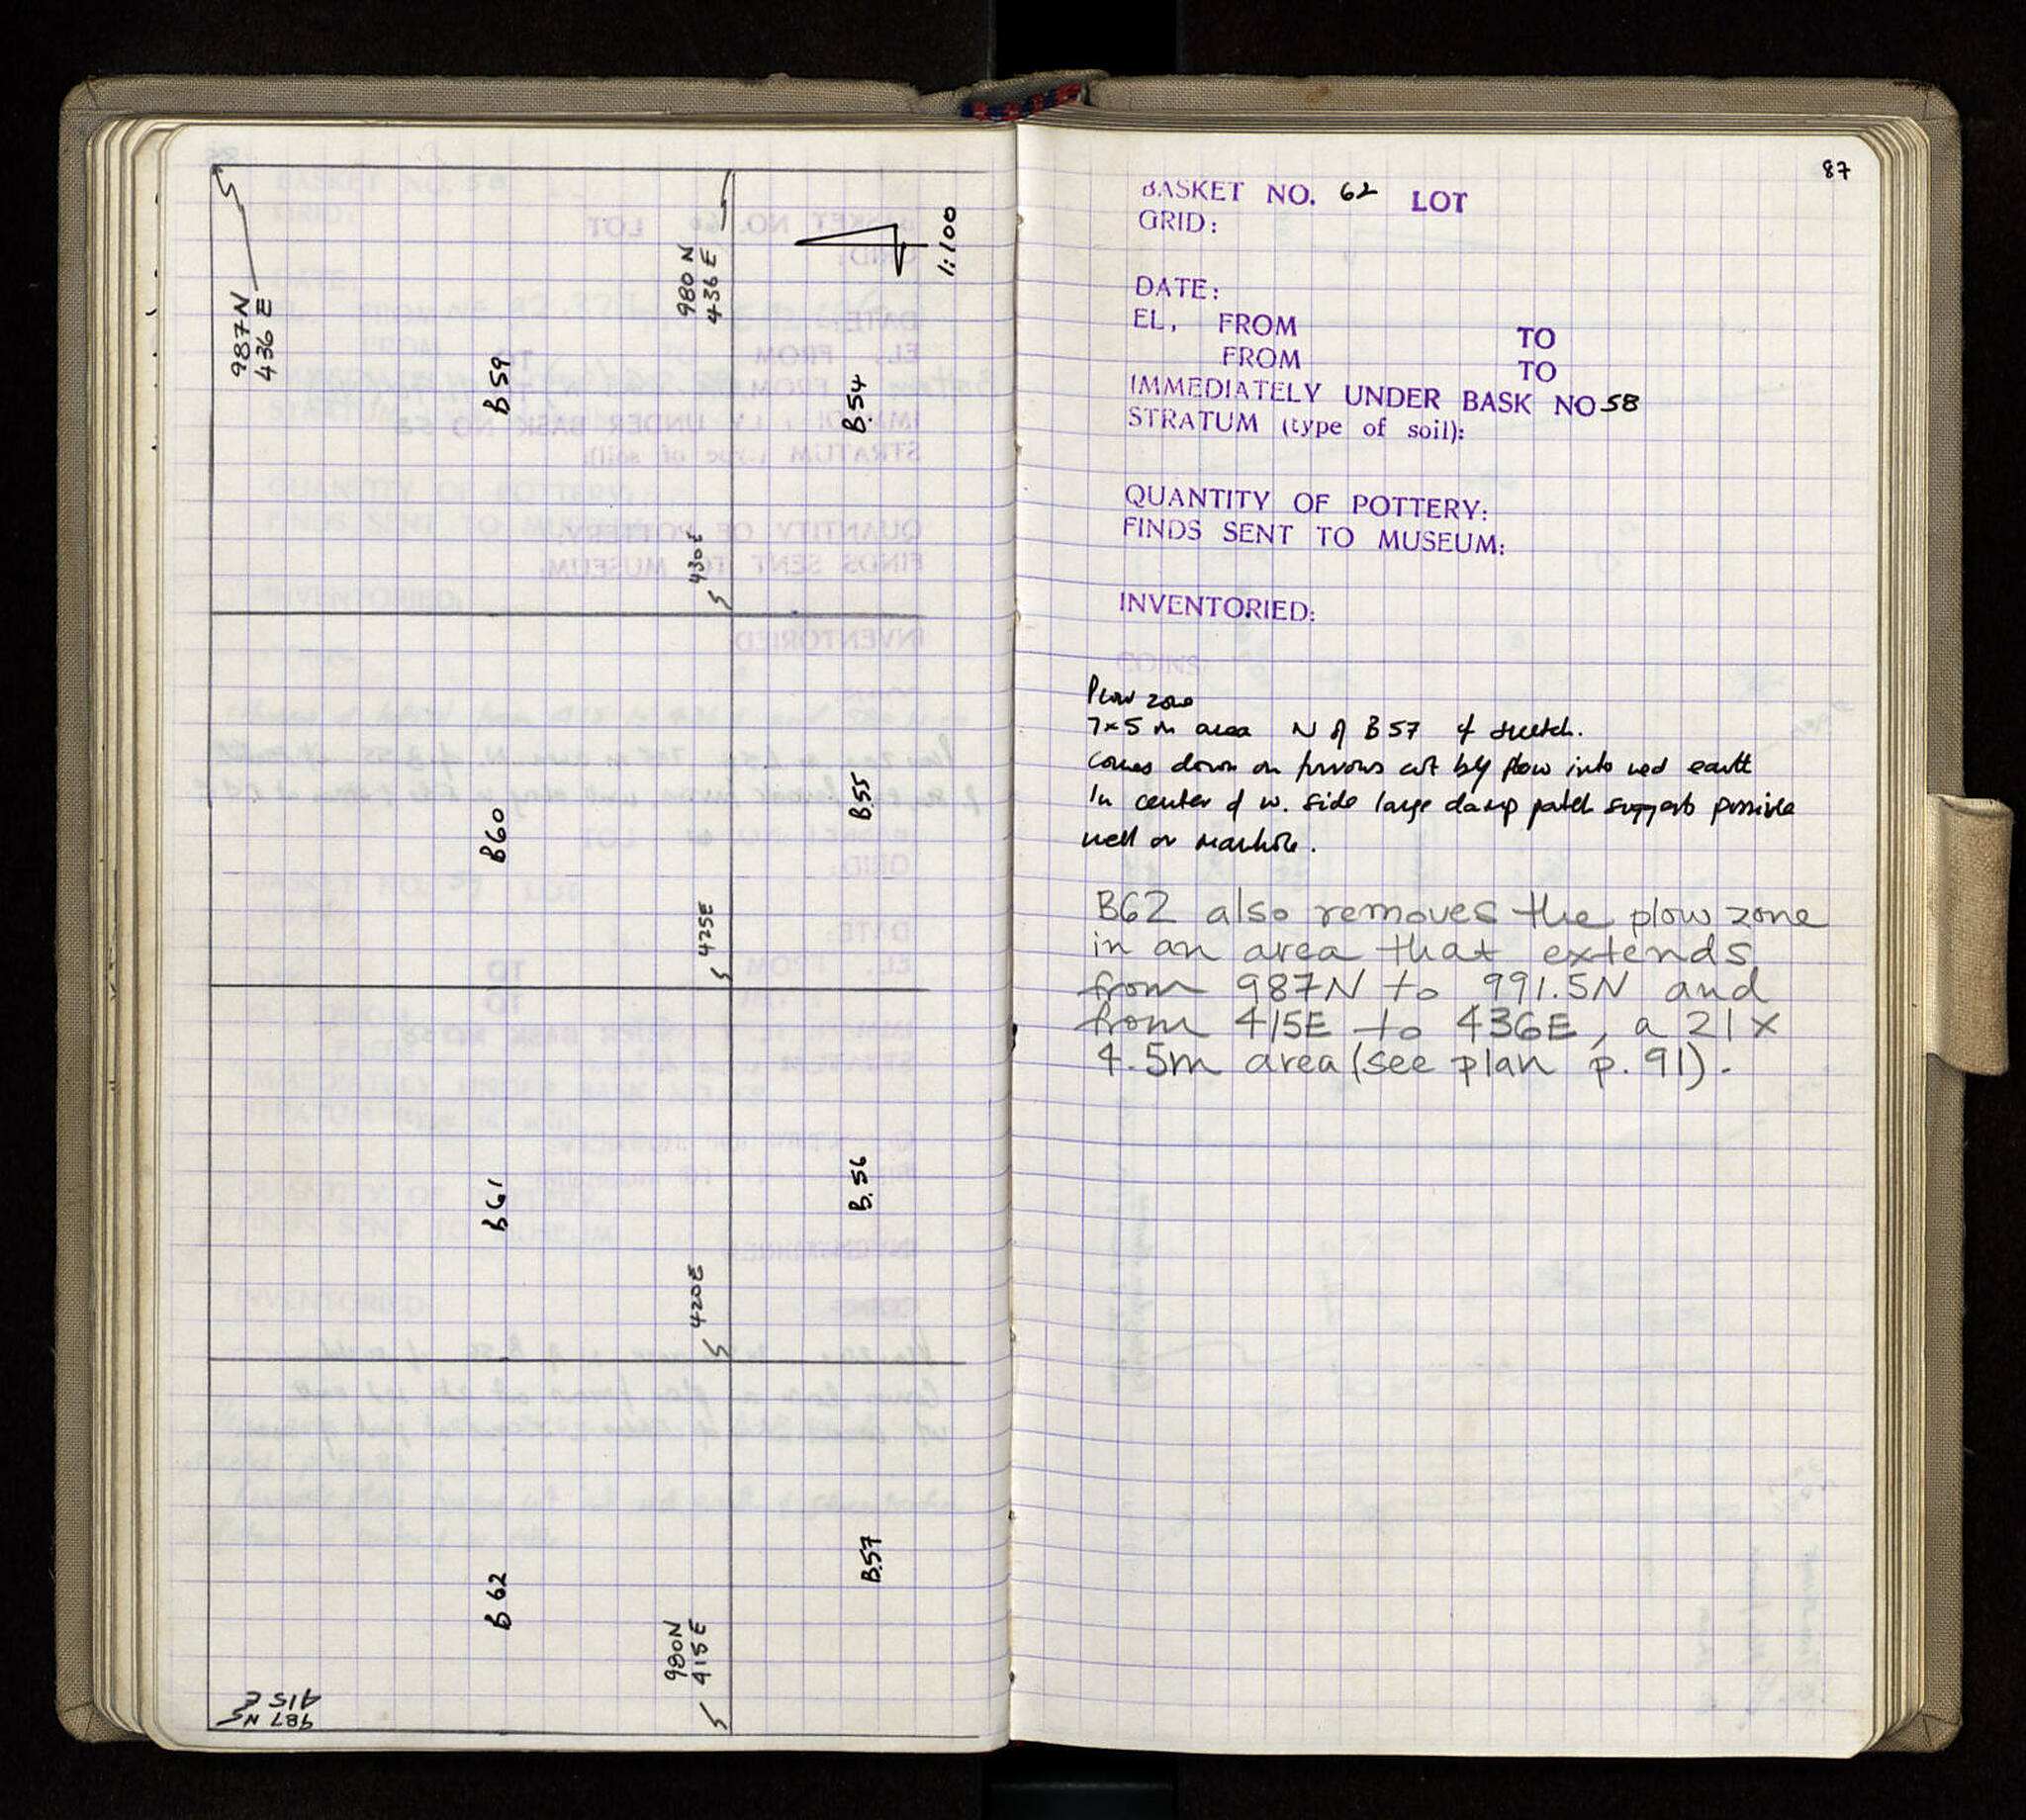 987N
436 E
980 N
436 E
1:100
B59
B.54
430E
B60
B.55
425E
B61
B.56
420E
B62
B.57
980N
415E
987 N
415 E
87
BASKET NO. 62 LOT
GRID:
DATE:
EL, FROM TO
FROM TO
IMMEDIATELY UNDER BASK NO 58
STRATUM (type of soil):
QUANTITY OF POTTERY:
FINDS SENT TO MUSEUM:
INVENTORIED:
COINS:
Plow zone
7x5 m area N of B57 of sketch.
Comes down on furrows cut by plow into red earth
In center of w. side large damp patch suggests possible
well or manhole.
B62 also removes the plow zone
in an area that extends
from 987N to 991.5N and
from 415E to 436E, a 21 x
4.5m area (see plan p. 91).